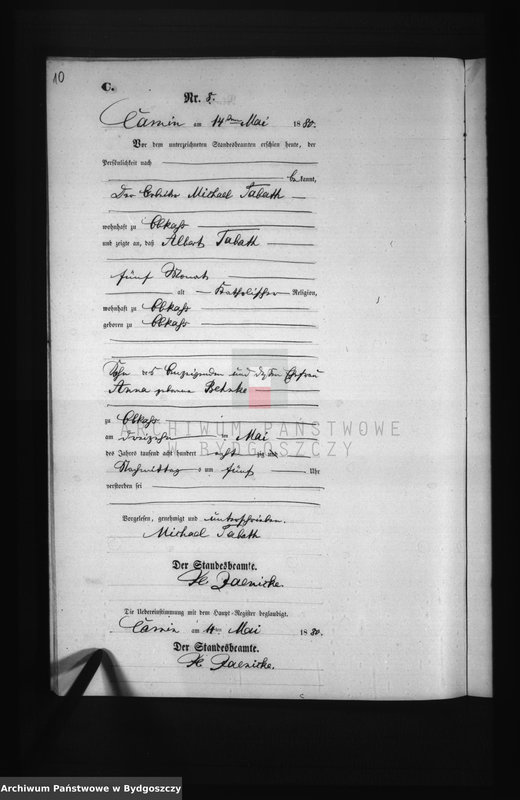 10
C.
Nr. 8.
Camin am 14ten Mai 1880.
Vor dem unterzeichneten Standesbeamten erschien heute, der
Persönlichkeit nach
bekannt,
Der Arbeiter Michael Tabath
wohnhaft zu Obkass
und zeigte an, daß Albert Tabath
fünf Monat
alt Katholischer Religion,
wohnhaft zu Obkass
geboren zu Obkass
Sohn des Anzeigenden und dessen Ehefrau
Anna geborene Betzke
zu Obkass
am dreizehn ten Mai
des Jahres tausend acht hundert acht zig und
Nachmittag s um fünf Uhr
verstorben sei
Vorgelesen, genehmigt und unterschrieben.
Michael Tabath
Der Standesbeamte.
Jaenicke.
Die Uebereinstimmung mit dem Haupt-Register beglaubigt.
Camin am 14ten Mai 1880.
Der Standesbeamte.
Jaenicke.
ARCHIWUM PAŃSTWOWE
W BYDGOSZCZY
Archiwum Państwowe w Bydgoszczy